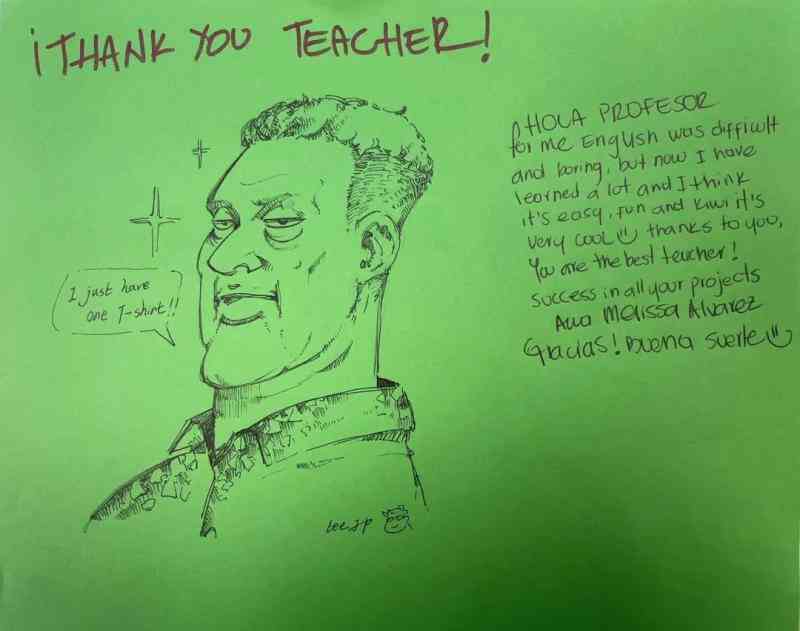 ¡THANK YOU TEACHER!
I just have
one T-shirt!!
HOLA PROFESOR
for me English was difficult
and boring, but now I have
learned a lot and I think
it's easy, fun and kiwi it's
very cool thanks to you,
You are the best teacher!
success in all your projects
Ana Melissa Alvarez
Gracias! buena suerte